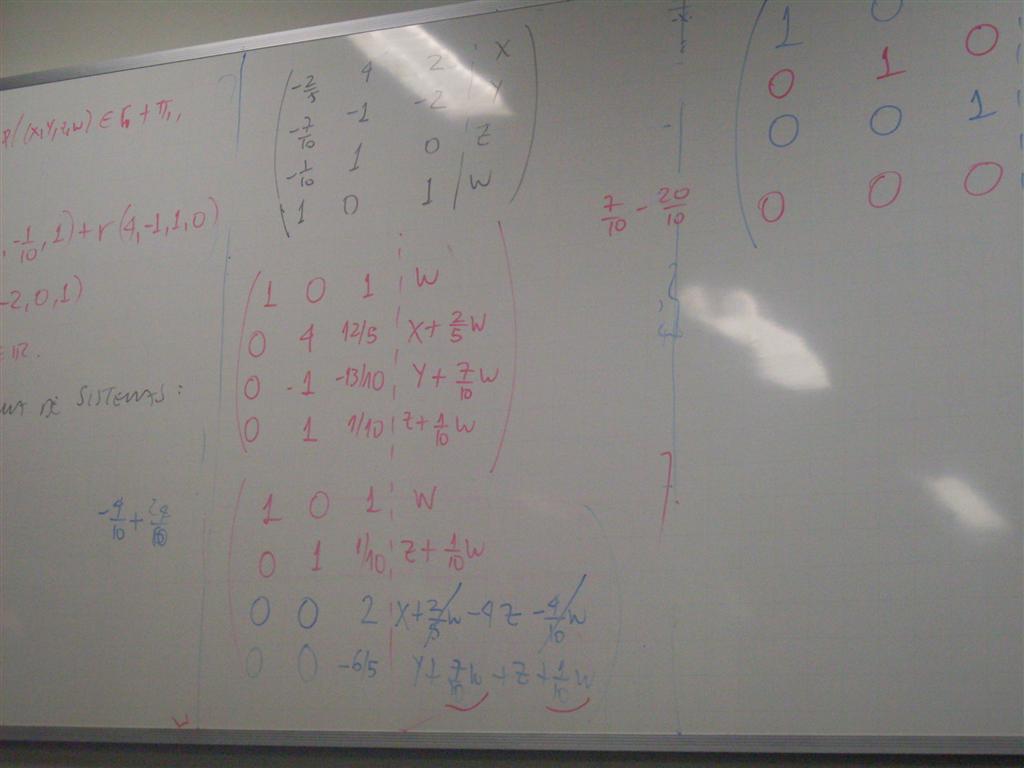 /(X,Y,Z,W) ∈
, -1/10, 1) + r(4,-1,1,0)
-2,0,1)
∈ IR.
DE SISTEMAS:
-4/10 +
-2/5 4 2 | X
-7/10 -1 -2 | Y
-1/10 1 0 | Z
1 0 1 | W
1 0 1 | W
0 4 12/5 | X + 2/5 W
0 -1 -13/10 | Y + 7/10 W
0 1 1/10 | Z + 1/10 W
1 0 1 | W
0 1 1/10 | Z + 1/10 W
0 0 2 | X + 2/5 W - 4Z - 4/10 W
0 0 -6/5 | Y + 7/10 W + Z + 1/10 W
7/10 - 20/10
1 0
0 1 0
0 0 1
0 0 0